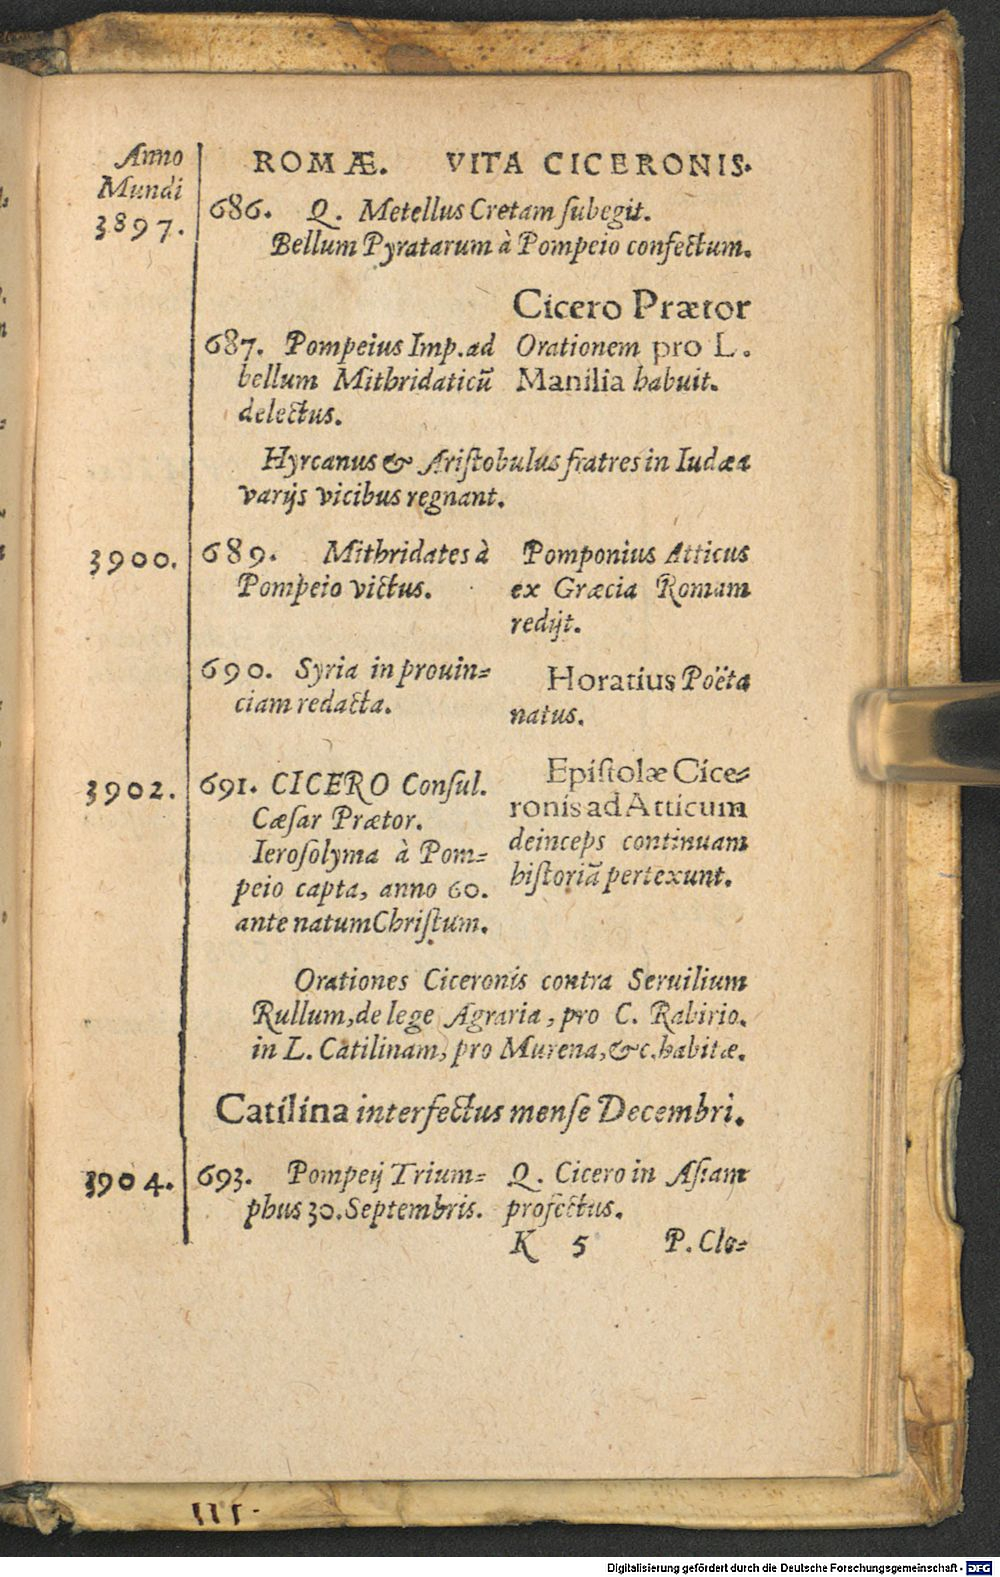 Anno
Mundi
3897.
ROMÆ. VITA CICERONIS.
686. Q. Metellus Cretam ſubegit.
Bellum Pyratarum à Pompeio confectum.
Cicero Prætor
687. Pompeius Imp. ad
bellum Mithridaticũ
delectus.
Orationem pro L.
Manilia habuit.
Hyrcanus & Ariſtobulus fratres in Iudæa
varijs vicibus regnant.
3900.
689. Mithridates à
Pompeio victus.
Pomponius Atticus
ex Græcia Romam
redijt.
690. Syria in prouin=
ciam redacta.
Horatius Poëta
natus.
3902.
691. CICERO Conſul.
Cæſar Prætor.
Ieroſolyma à Pom=
peio capta, anno 60.
ante natum Chriſtum.
Epiſtolæ Cice=
ronis ad Atticum
deinceps continuam
hiſtoriã pertexunt.
Orationes Ciceronis contra Seruilium
Rullum, de lege Agraria, pro C. Rabirio.
in L. Catilinam, pro Murena, &c. habitæ.
Catilina interfectus menſe Decembri.
3904.
693. Pompeij Trium=
phus 30. Septembris.
Q. Cicero in Aſiam
profectus.
K 5 P. Clo=
Digitalisierung gefördert durch die Deutsche Forschungsgemeinschaft - DFG